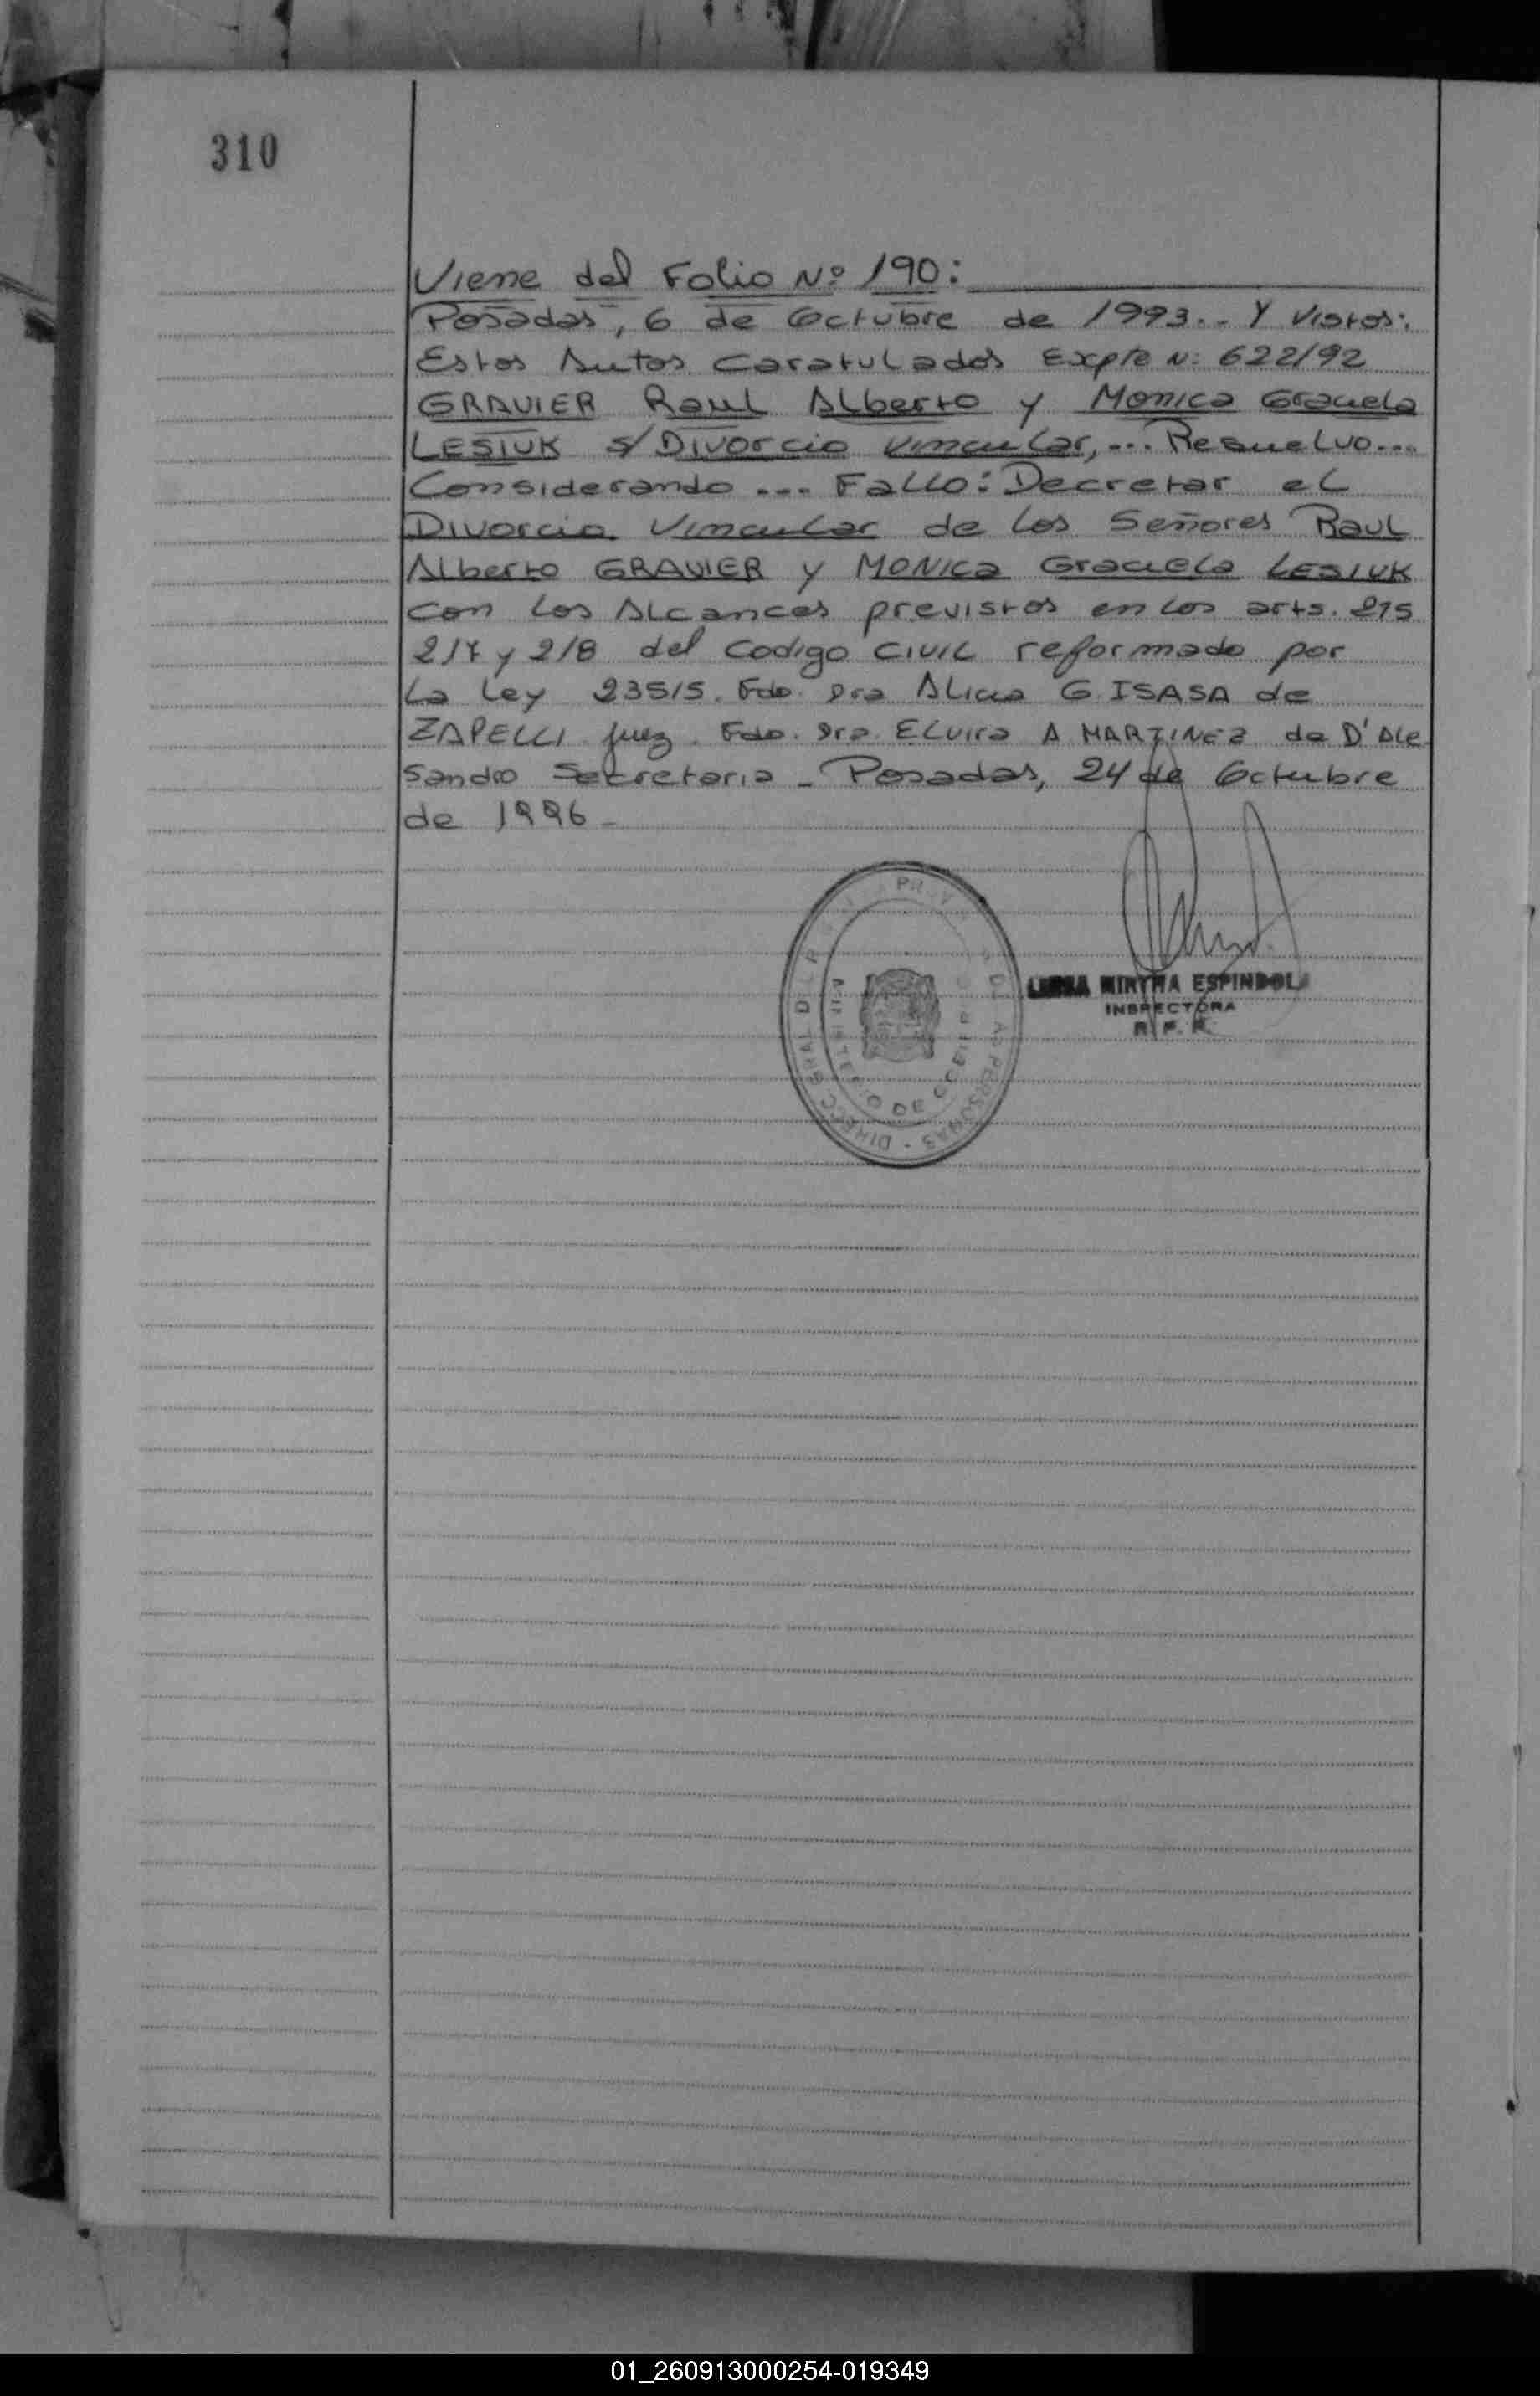 310
Viene del Folio Nº 190:
Posadas, 6 de Octubre de 1993.- Y Vistos:
Estos Autos Caratulados Expte N: 622/92
GRAVIER Raul Alberto y Monica Graciela
LESIUK s/ Divorcio Vincular, ... Resuelvo...
Considerando ... Fallo: Decretar el
Divorcio Vincular de los Señores Raul
Alberto GRAVIER y MONICA Graciela LESIUK
con los Alcances previstos en los arts. 215
217 y 218 del Codigo Civil reformado por
La Ley 23515. Fdo. Dra Alicia G. ISASA de
ZAPELLI Juez. Fdo. Dra. ELVIRA A MARTINEZ de D'Ale
sandro Secretaria - Posadas, 24 de Octubre
de 1996 -
MIRTHA ESPINDOLA
INSPECTORA
R. P. P.
DIRECC GRAL DE PERSONAS
MINISTERIO DE GOBIERNO
01_260913000254-019349